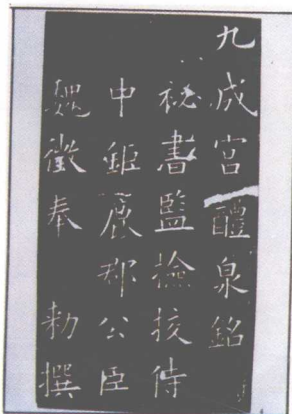 九成宮醴泉銘
祕書監撿挍侍
中鉅鹿郡公臣
魏徵奉 勅撰